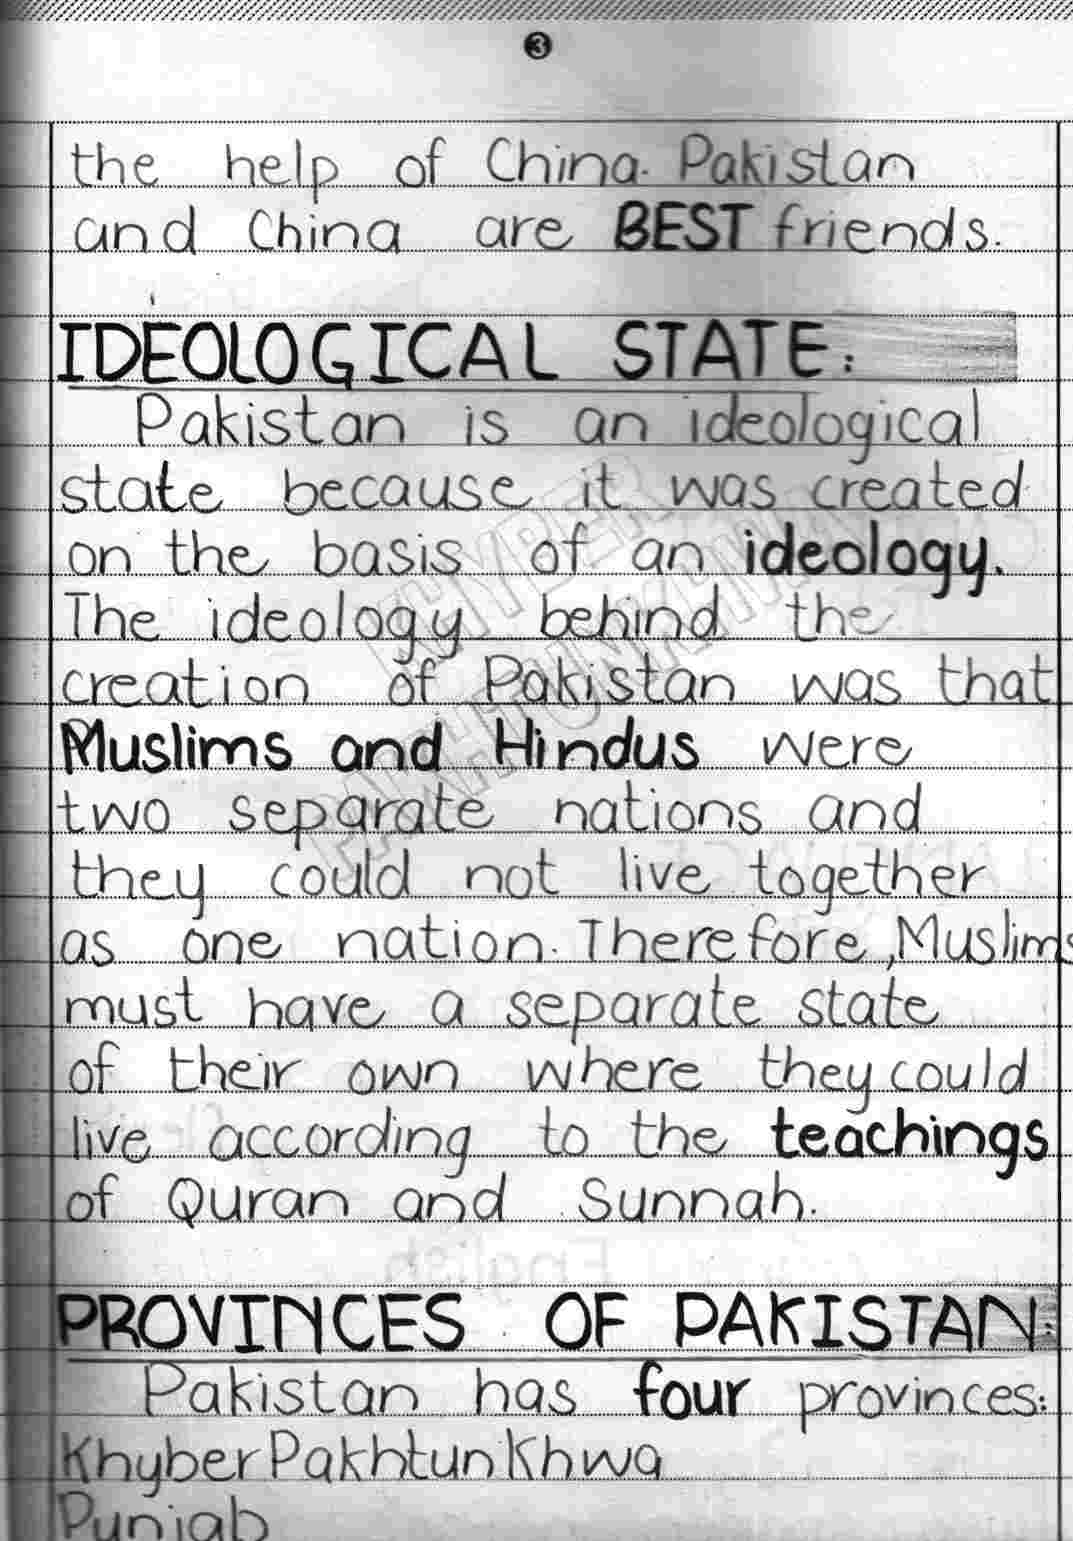 3
the help of China. Pakistan
and China are BEST friends.
IDEOLOGICAL STATE:
Pakistan is an ideological
state because it was created
on the basis of an ideology.
The ideology behind the
creation of Pakistan was that
Muslims and Hindus were
two separate nations and
they could not live together
as one nation. Therefore, Muslims
must have a separate state
of their own where they could
live according to the teachings
of Quran and Sunnah.
PROVINCES OF PAKISTAN:
Pakistan has four provinces:
Khyber Pakhtunkhwa
Punjab